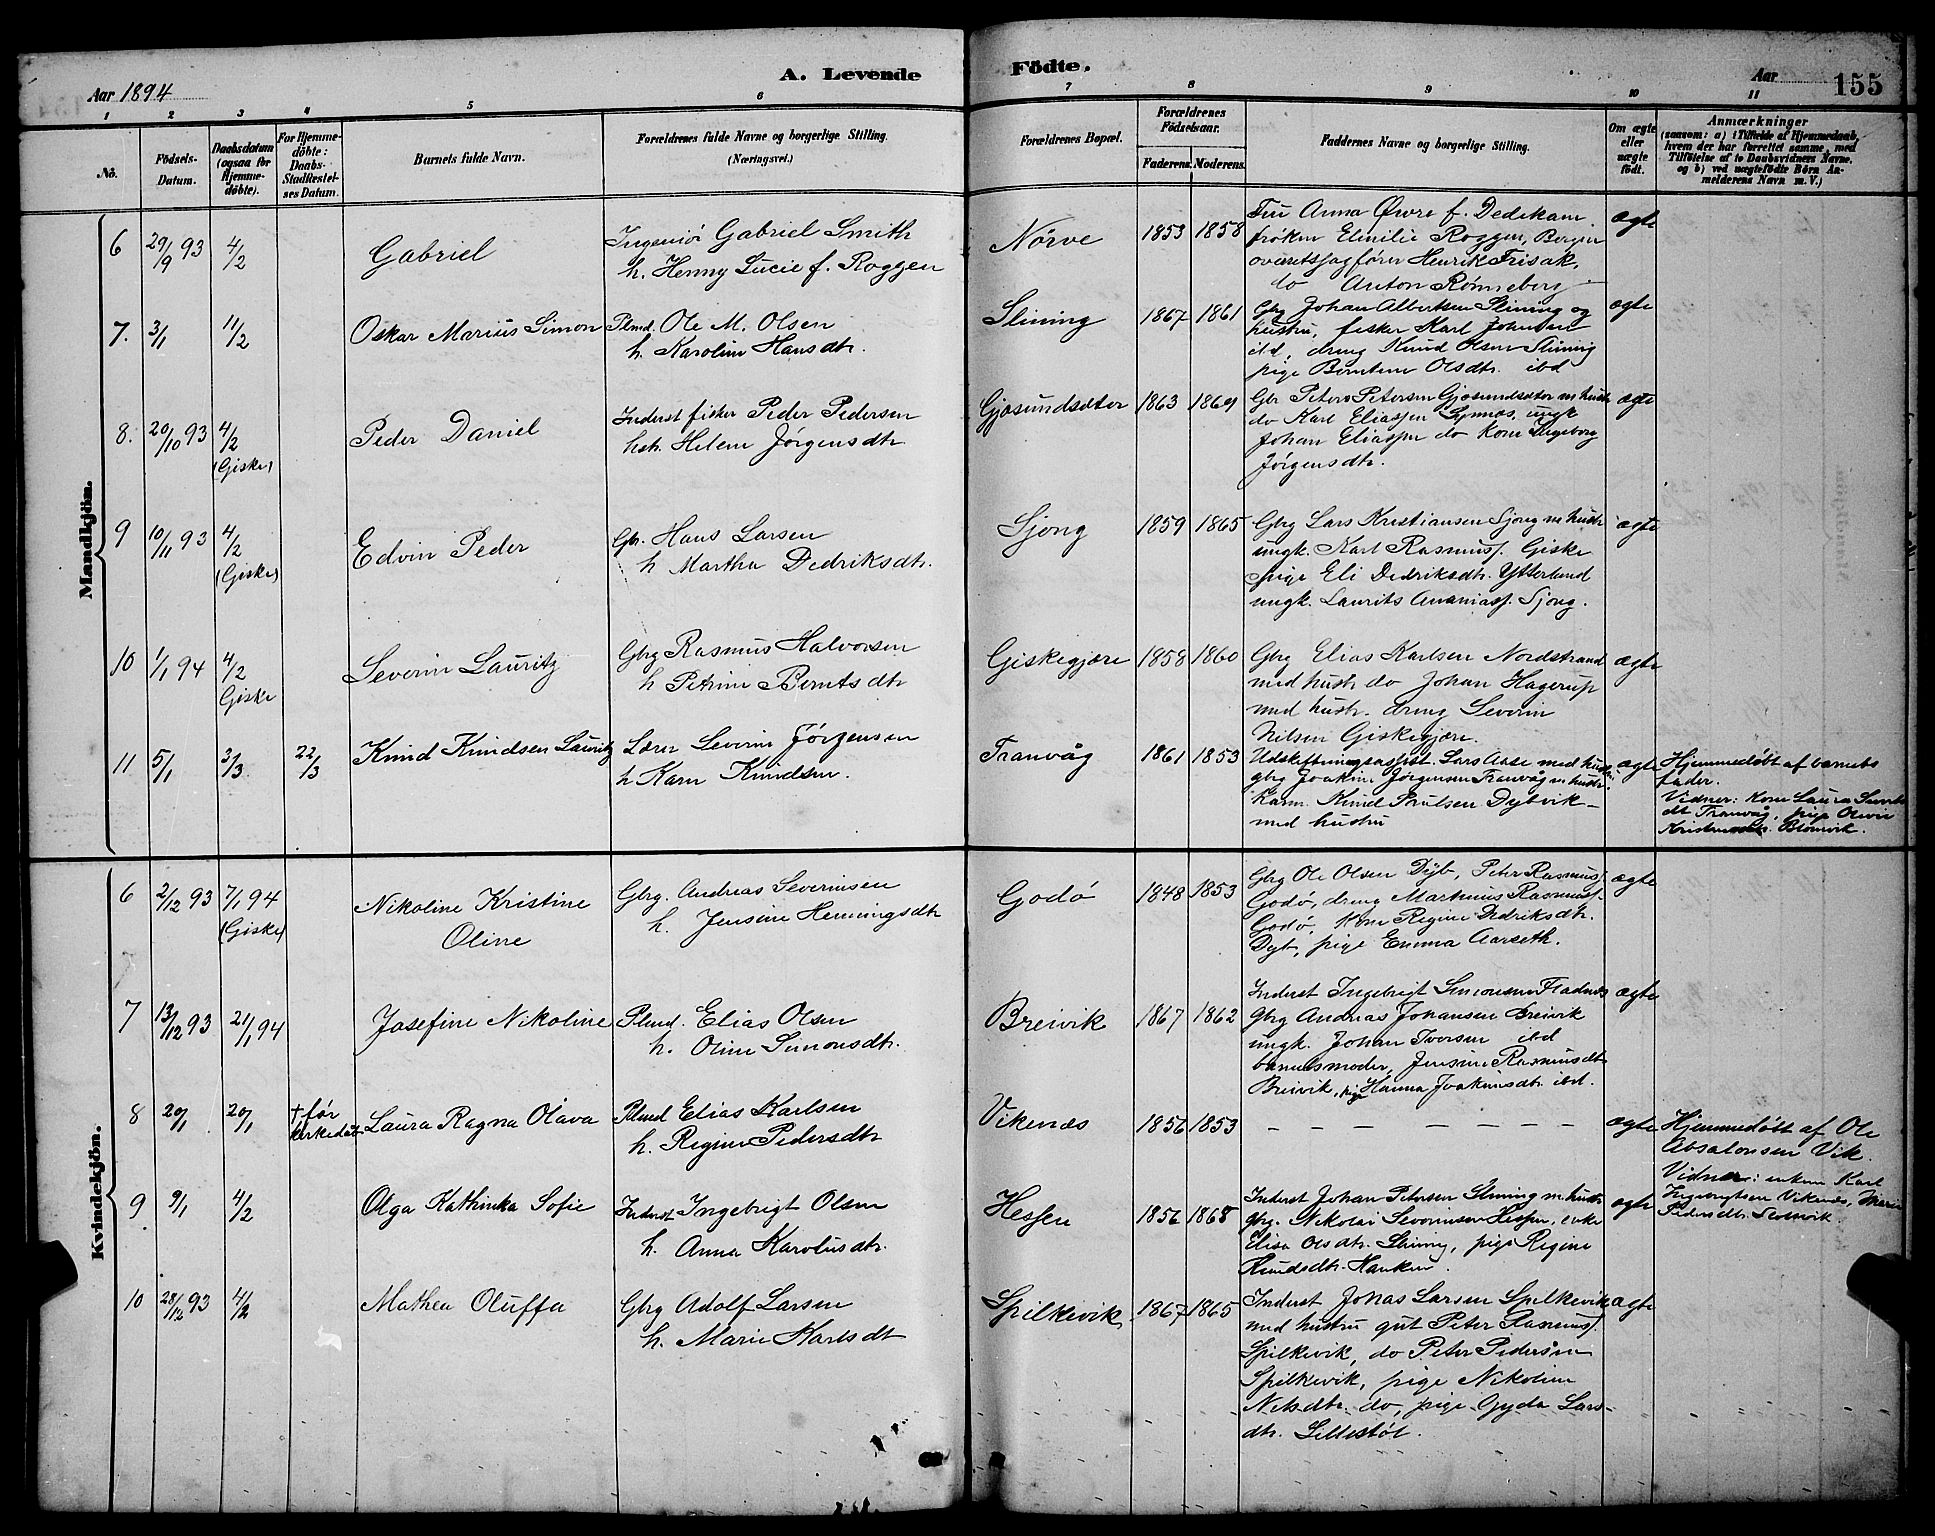 A. Levende Födte.
Aar 1894
Aar 155
1 2 3 4 5 6 7 8 9 10 11
No.
Födsels-Datum.
Daabsdatum (ogsaa for Hjemme-döbte).
For Hjemme-döbte: Daabs-Stadfæstel-ses Datum.
Barnets fulde Navn.
Forældrenes fulde Navne og borgerlige Stilling.
(Næringsvei.)
Forældrenes Bopæl.
Forældrenes Födselsaar.
Faderens. Moderens.
Faddernes Navne og borgerlige Stilling.
Om ægte eller uægte födt.
Anmærkninger
(saasom: a) i Tilfælde af Hjemmedaab,
hvem der har forrettet samme, med
Tilföielse af to Daabsvidners Navne,
og b) ved uægtefödte Börn An-
melderens Navn m. V.)
Mandkjön.
6 29/9 93 4/2 Gabriel
Ingeniör Gabriel Smith
h. Henny Lucie f. Roggen
Nörve 1853 1858
Fru Anna Øwre f. Dedekam
fröken Emilie Roggen, Bergen
overretssagförer Henrik Frisak,
do Anton Rønneberg
ægte
7. 3/1 11/2 Oskar Marius Simon
Plmd. Ole M. Olsen
h. Karoline Hansdtr.
Slining 1867 1861
Gbrg Johan Albertsen Slining og
hustru, fisker Karl Johnsen
ibd, dreng Knud Olsen Slining
pige Berntine Olsdtr. ibd
ægte
8. 20/10 93 4/2 (Giske) Peder Daniel
Inderst fisker Peder Pedersen
hstr. Helene Jörgensdtr
Gjøsundsæter 1863 1869
Gbr Peter Petersen Gjøsundsæter m hustr
do Karl Eliassen Synnes, ungk
Johan Eliassen do Kone Ingeborg
Jörgensdtr.
ægte
9 10/11 93 4/2 (Giske) Edvin Peder
Gbr. Hans Larsen
h Martha Dedriksdtr.
Sjong 1859 1865
Gbrg Lars Kristiansen Sjong m hustr
ungk. Karl Rasmuss. Giske
pige Eli Dedriksdtr. Ytterland
ungk. Laurits Ananiass. Sjong.
ægte
10 1/1 94 4/2 Giske Severin Lauritz
Gbrg Rasmus Halvorsen
h Petrine Berntsdtr
Giskegjære 1858 1860
Gbrg Elias Karlsen Nordstrand
med hustr do Johan Hagerup
med hustr. dreng Severin
Nilsen Giskegjære.
ægte
11 5/1 3/3 22/3 Knud Knudsen Lauritz
Lærer Severin Jörgensen
h Karn Knudsen.
Tranvåg 1861 1853
Udskiftningsassist. Lars Aase med hustru
gbrg Joakim Jörgensen Tranvåg m hustr.
Knud Poulsen Dybvik
med hustru
ægte
Hjemmedøbt af barnets
fader.
Vidner: Kone Laura
dt Tranvåg, pige Olevie
Kvindekjön.
6 2/12 93 7/1 94 (Giske) Nikoline Kristine
Oline
Gbrg. Andreas Severinsen
h. Jensine Henningsdtr
Godö 1848 1853
Gbrg Ole Olsen Dyb, Peter Rasmuss.
Godö, dreng Martinus Rasmuss.
Godö, Kone Regine Dedriksdtr.
Dyb, pige Emma Aarseth.
ægte
7 13/12 93 21/1 94 Josefine Nikoline
Plmd. Elias Olsen
h. Oline Simonsdtr.
Breivik 1867 1862
Inderst Ingebrigt Simonsen Fladnes
Gbrg Andreas Johansen Breivik
ungk. Johan Iversen ibd
barnets moder, Jensine Rasmusdtr
Breivik, pige Hanna Joakimsdtr ibd.
ægte
8 20/1 20/1 † før kirkedåb Laura Ragna Olava
Plmd Elias Karlsen
h. Regine Pedersdtr
Vikenæs 1856 1853
– – – – – – –
ægte
Hjemmedöbt af Ole
Absalonsen Vik.
Vidner: Karl
Ingebrigtsen Vikenæs,
Pedersdtr.
9 9/1 4/2 Olga Kathinka Sofie
Inderst Ingebrigt Olsen
h. Anna Karolusdtr.
Hessen 1856 1868
Inderst Johan Petersen Slining m hustr
gbrg. Nikolai Severinsen Hessen, enke
Elisa Olsdtr. Slining, pige Regine
Knudsdtr. Hanken.
ægte
10 28/12 93 4/2 Mathea Oluffa
Gbrg Adolf Larsen
h. Marie Karlsdt
Spilkevik 1867 1865
Inderst Jonas Larsen Spilkevik
med hustru gut Peter Rasmuss.
Spilkevik, do Peter Pedersen
Spilkevik, pige Nikoline
Nilsdtr. do, pige Gyda Lars-
dtr. Lillestøl.
ægte